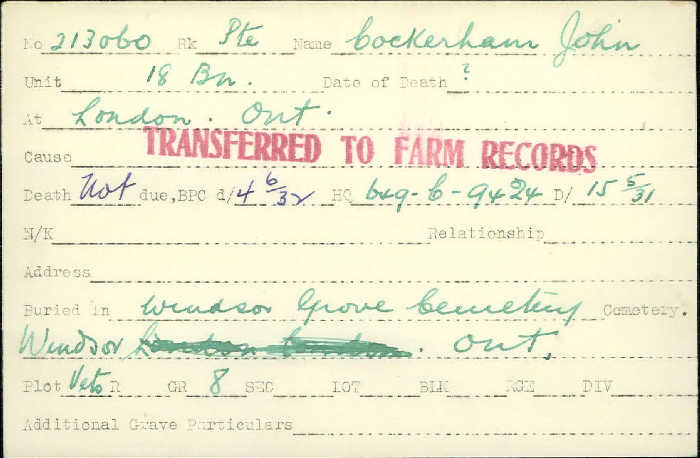 No 213060 Rk Pte Name Cockerham John
Unit 18 Bn. Date of Death ?
At London. Ont.
TRANSFERRED TO FARM RECORDS
Cause
Death Not due, BPC d/ 4 6/32 HQ 649-C-9424 D/ 15 5/31
N/K Relationship
Address
Buried in Windsor Grove Cemetery Cemetery.
Windsor Ont.
Plot Vets R GR 8 SEC LOT BLK RGE DIV
Additional Grave Particulars